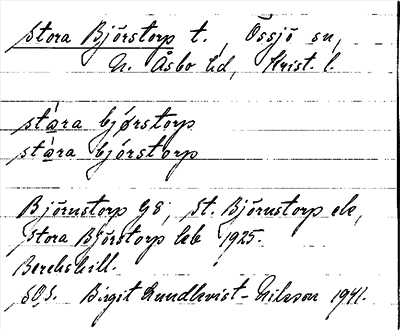 Stora Björstorp t., Össjö sn,
N. Åsbo hd, Krist. l.
stɑ̀ra bjǿrstorp
stɑ̀ra bjórstorp
Björnstorp gs; St. Björnstorp ek,
Stora Björstorp leb 1925.
sOs. Birgit Rundkvist-Nilsson 1941.